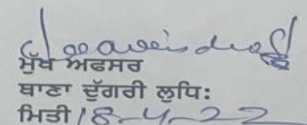 ਮੁੱਖ ਅਫਸਰ
ਥਾਣਾ ਦੁੱਗਰੀ ਲੁਧਿ:
ਮਿਤੀ 18-4-22